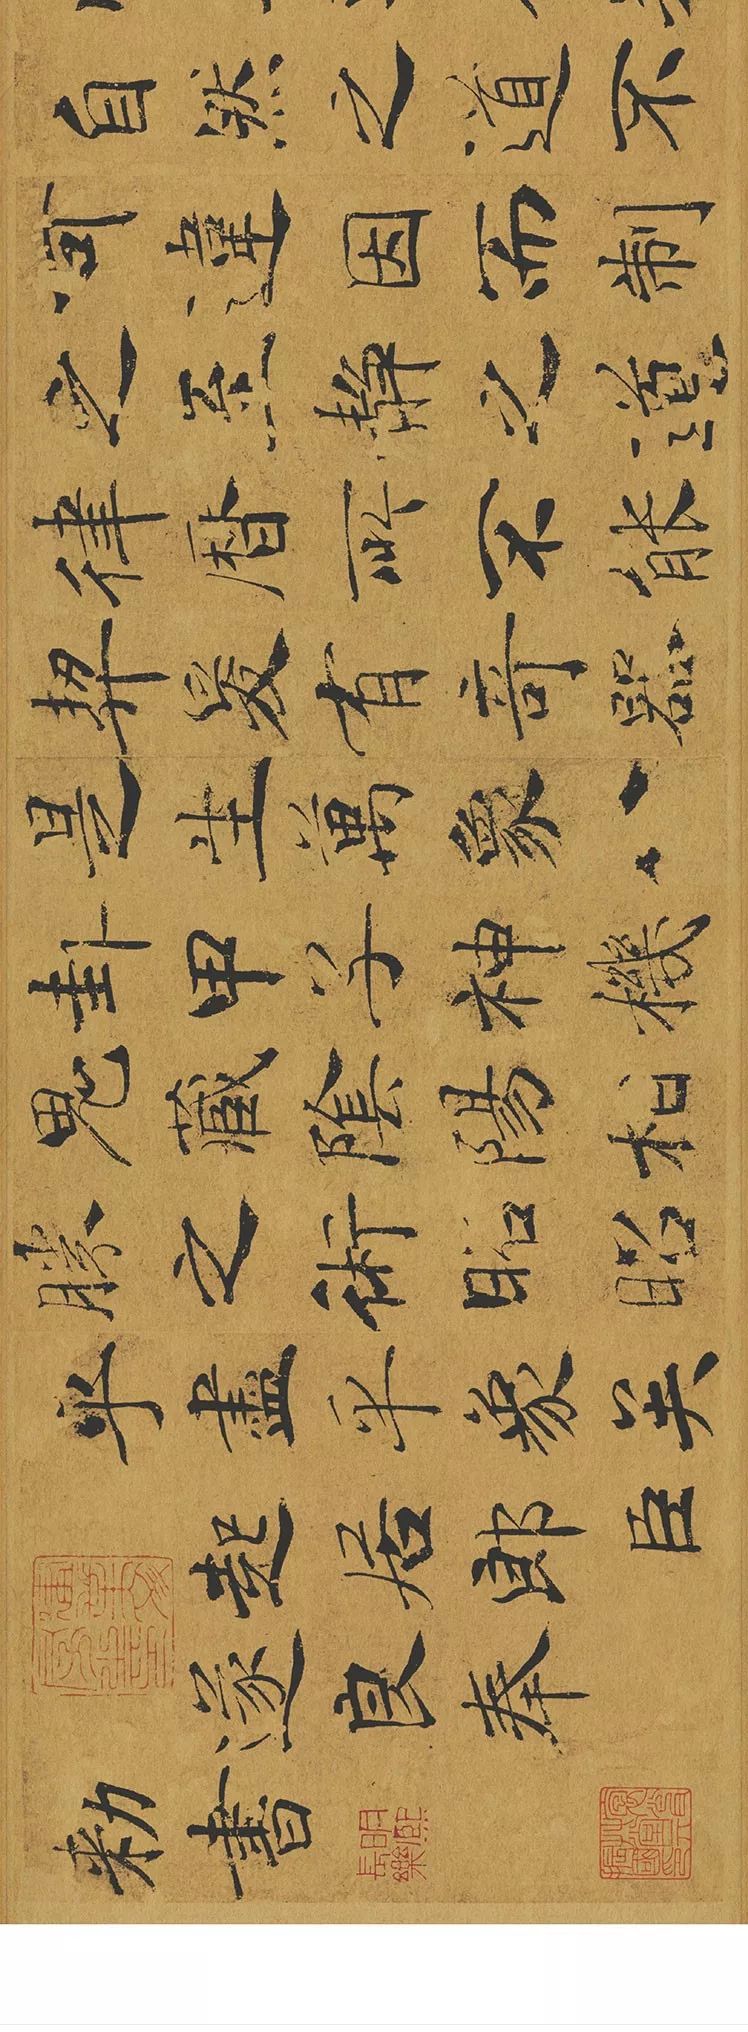 自然之道不
可違因而制
之至靜之道
律曆所不能
契爰有奇器
是生萬象八
卦甲子神機
鬼藏陰陽相
勝之術昭昭
乎盡乎象矣
起居郎臣
遂良奉
勑書